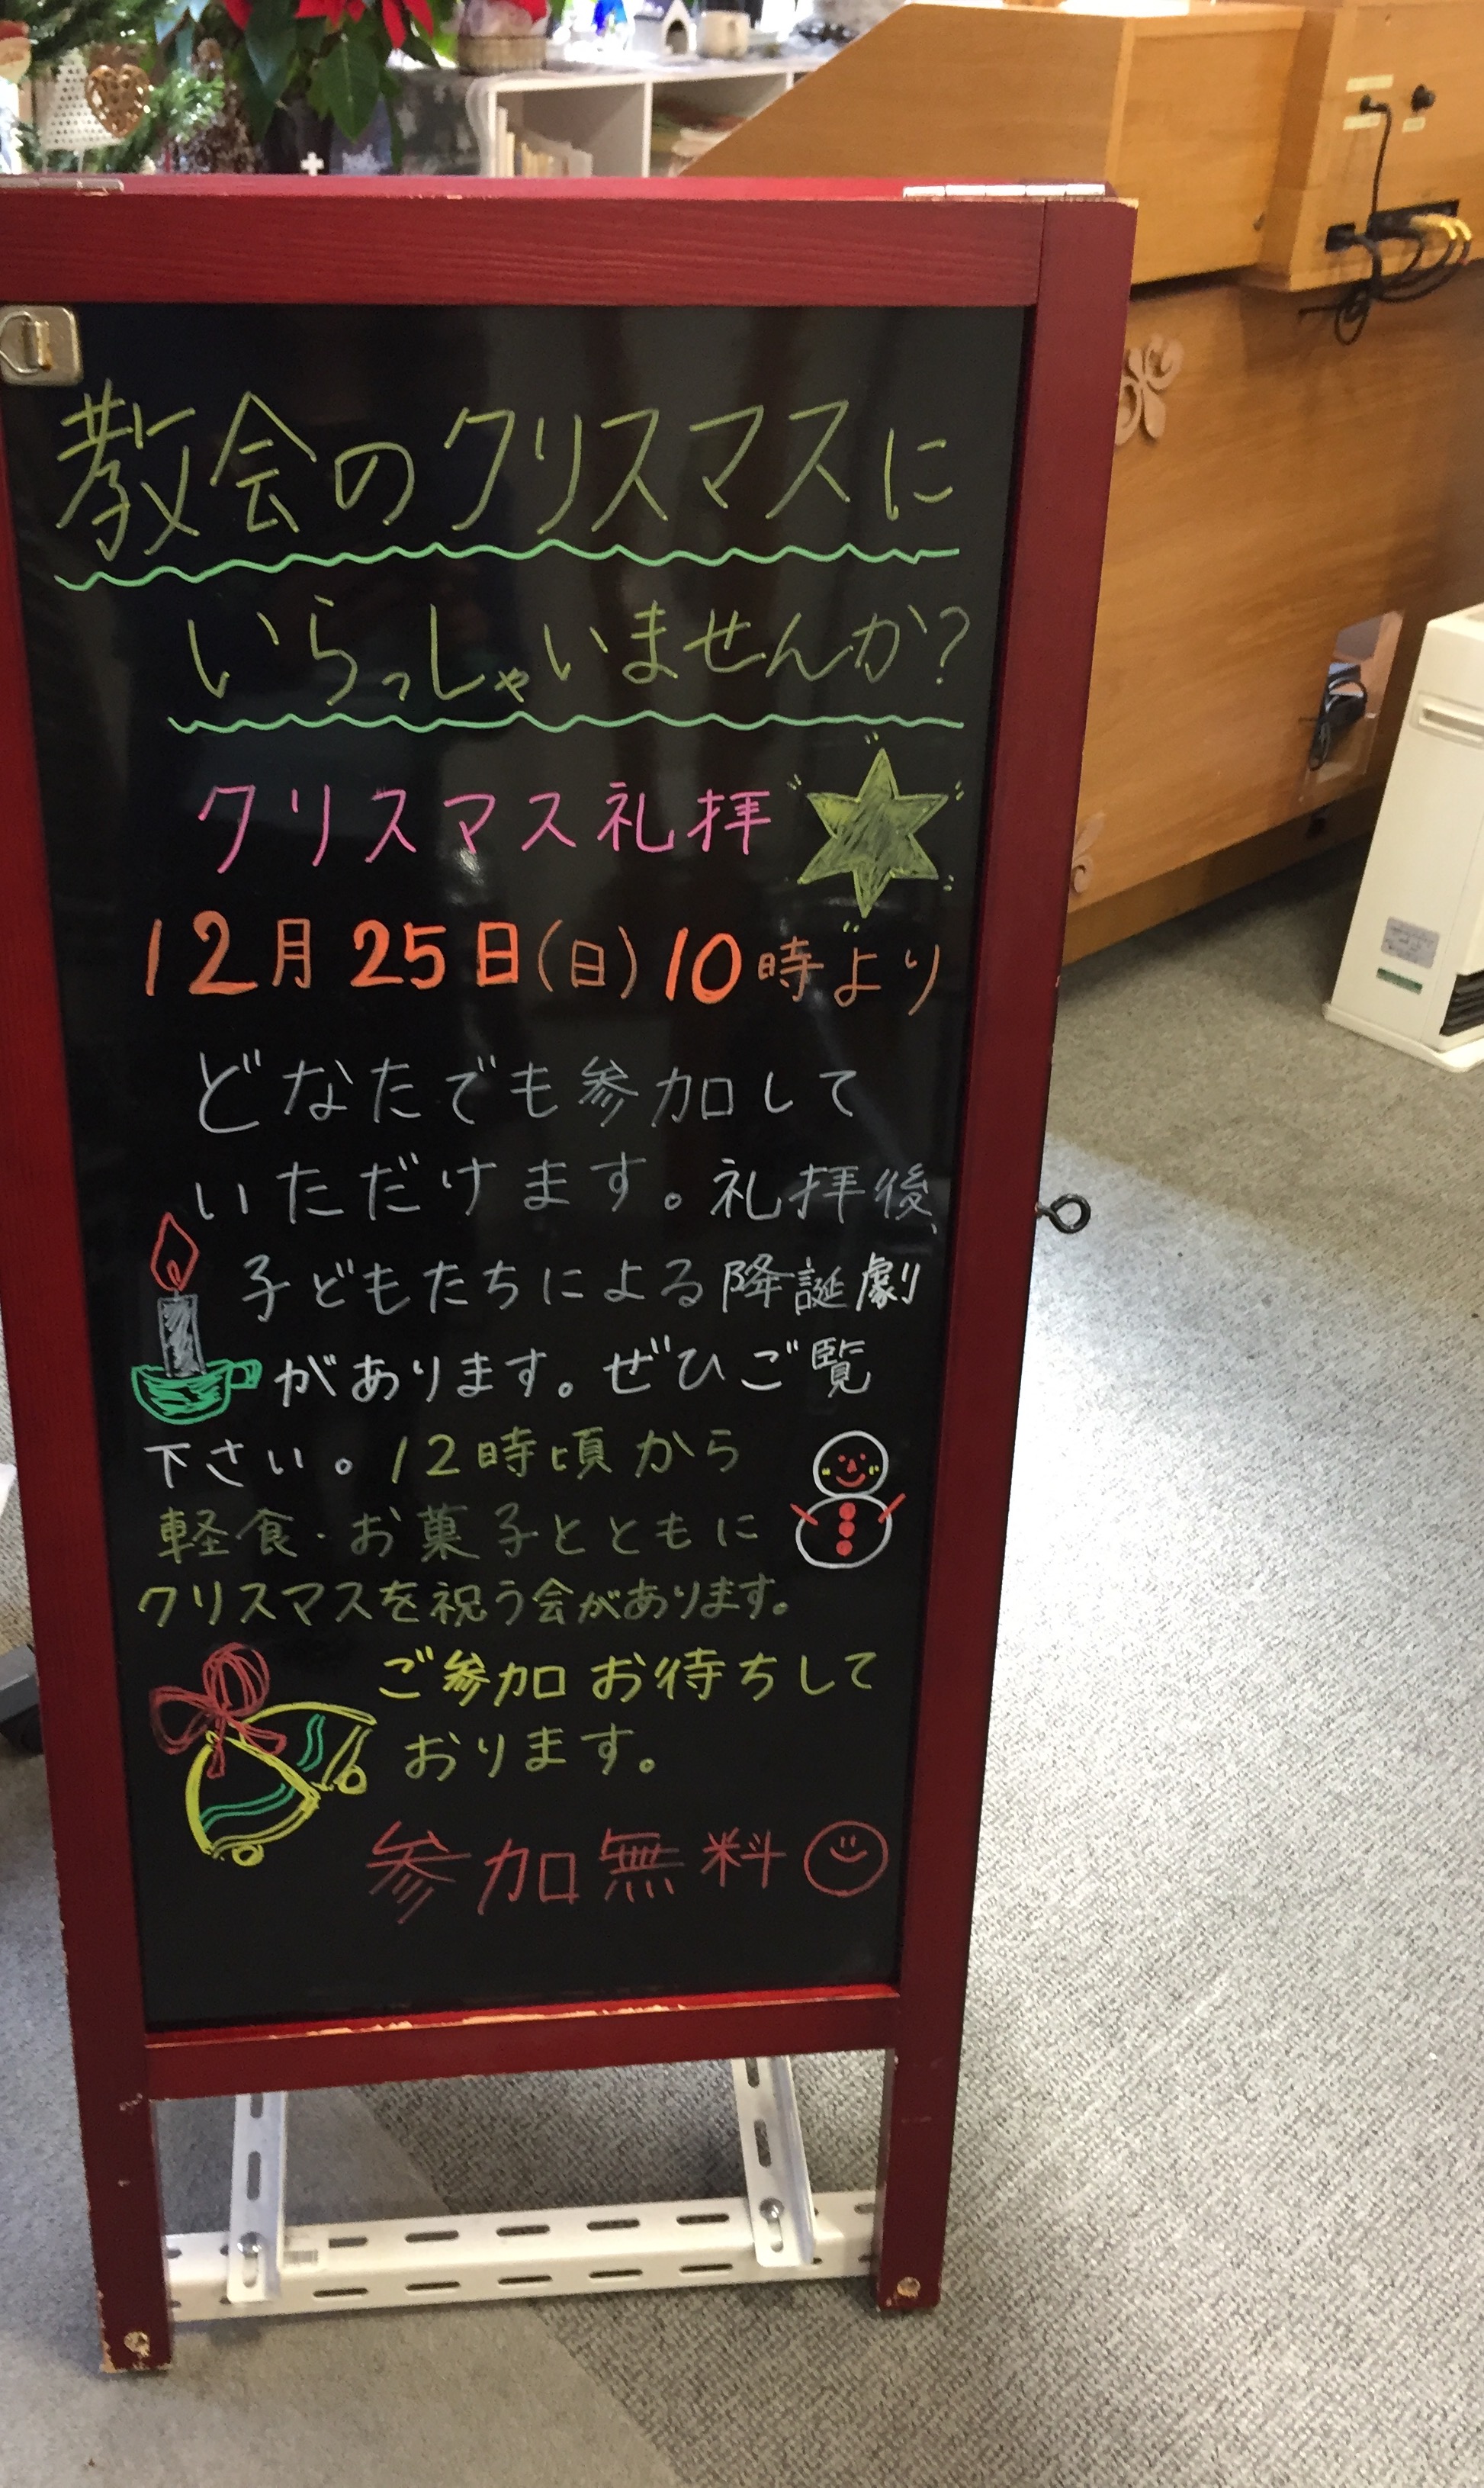 教会のクリスマスに
いらっしゃいませんか?
クリスマス礼拝
12月25日(日)10時より
どなたでも参加して
いただけます。礼拝後、
子どもたちによる降誕劇
があります。ぜひご覧
下さい。12時頃から
軽食・お菓子とともに
クリスマスを祝う会があります。
ご参加お待ちして
おります。
参加無料